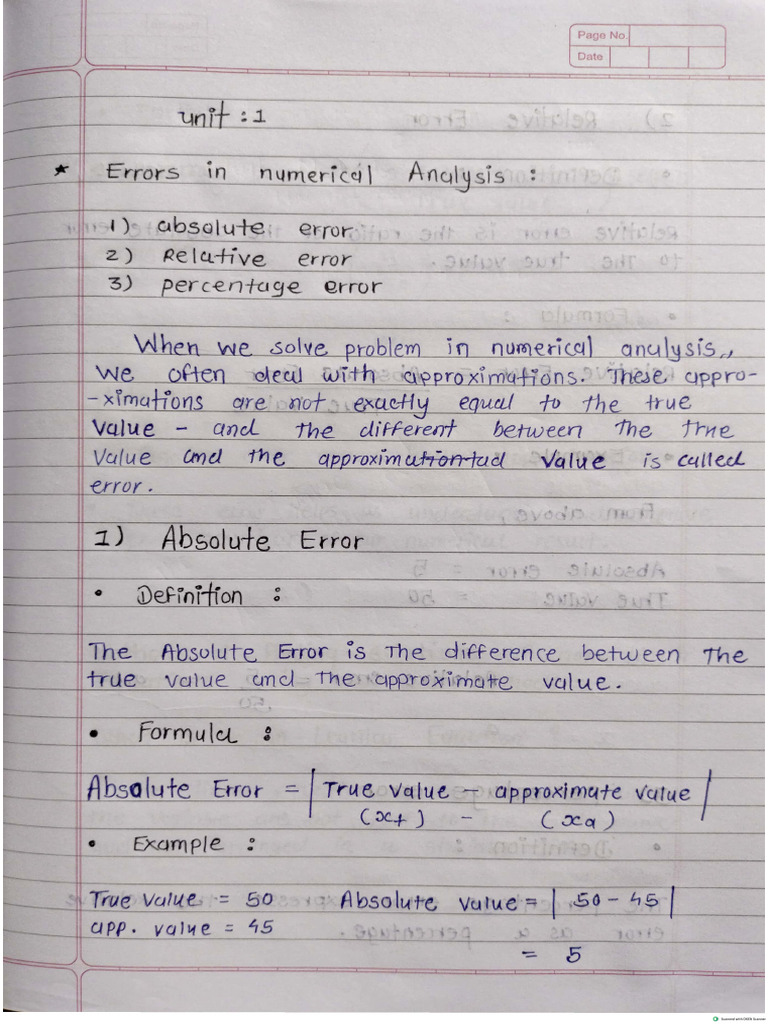 Page No.
Date
unit : 1
* Errors in numerical Analysis :
1) absolute error
2) Relative error
3) percentage error
When we solve problem in numerical analysis,,
we often deal with approximations. These appro-
-ximations are not exactly equal to the true
value - and the different between the true
value and the approximationtad value is called
error.
1) Absolute Error
• Definition :
The Absolute Error is the difference between the
true value and the approximate value.
• Formula :
Absolute Error = | True value - approximate value |
(xt) - (xa)
• Example :
True value = 50 Absolute value = | 50 - 45 |
app. value = 45
= 5
Scanned with OKEN Scanner